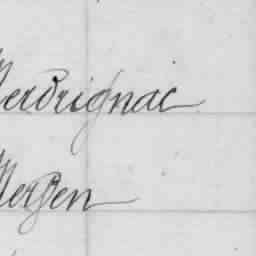 Merdrignac
Mergen